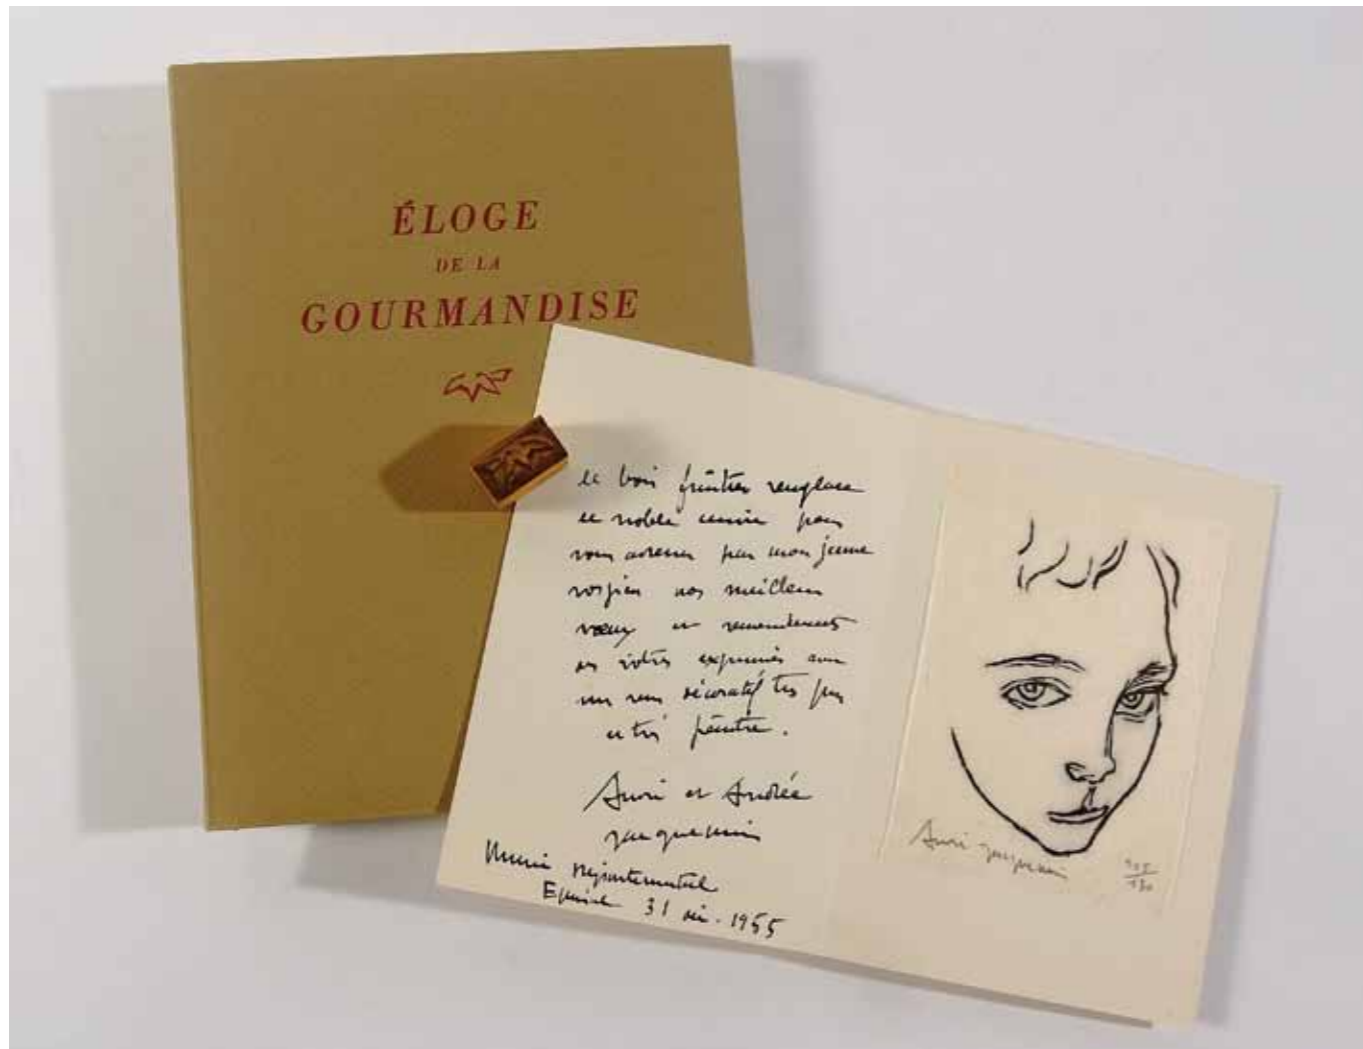 ÉLOGE
DE LA
GOURMANDISE
le bois fruitier remplace
le noble cuivre pour
vous adresser par mon jeune
vosgien nos meilleurs
vœux et remerciements
des vôtres exprimés avec
un sens décoratif très pur
et très peintre.
André et Andrée
Jacquemin
Musée départemental
Epinal 31 déc. 1955
André Jacquemin
130